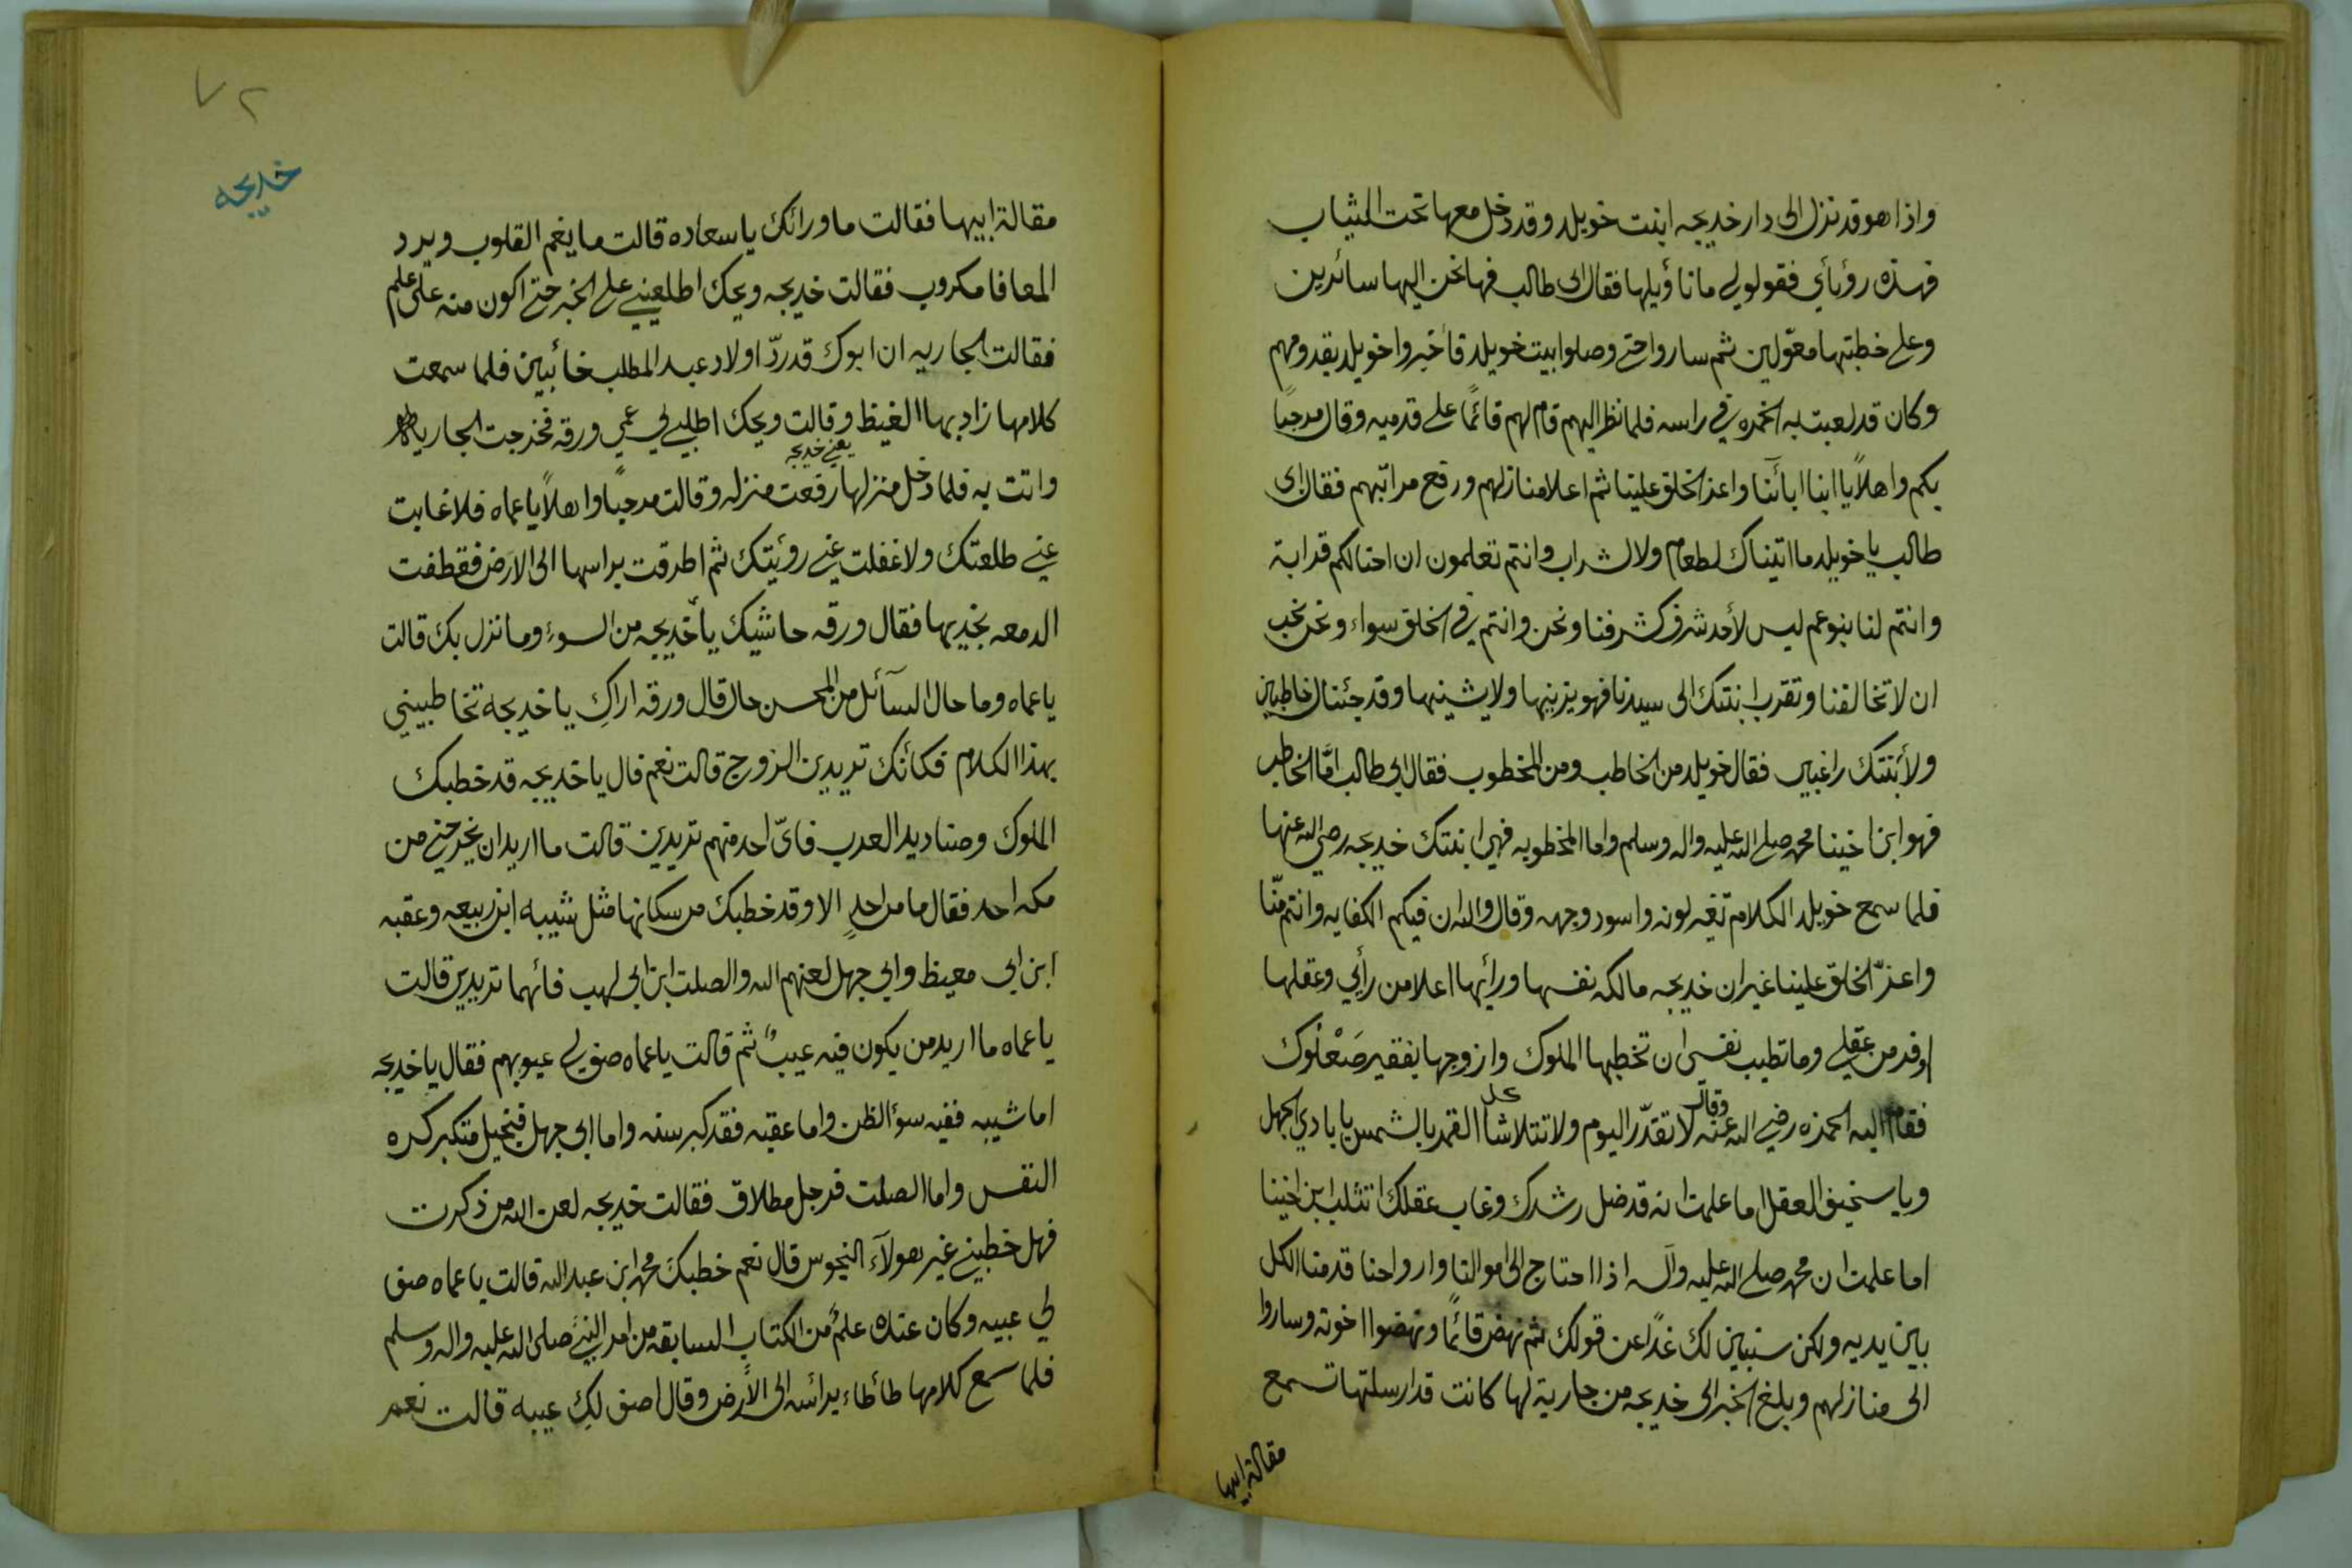 واذا هو قد نزل الى دار خديجه ابنت خويلد وقد دخل معها تحت الثياب
فهذه رؤيأي فقولو لي ما تأويلها فقال ابى طالب فها نحن اليها سائرين
وعلى خطبتها معوّلين ثم ساروا حتى وصلوا بيت خويلد فأخبروا خويلد بقدومهم
وكان قد لعبت به الخمره في راسه فلما نظر اليهم قام لهم قائمًا على قدميه وقال مرحبًا
بكم واهلاً يا ابنا ابائنا واعز الخلق علينا ثم اعلا منازلهم ورفع مراتبهم فقال ابى
طالب يا خويلد ما اتيناك لطعام ولا لشراب وانتم تعلمون ان احنا لكم قرابة
وانتم لنا بنو عم ليس لأحد شرف كشرفنا ونحن وانتم في الخلق سواء ونحن نحب
ان لا تخالفنا وتقرب ابنتك الى سيدنا فهو يزينها ولا يشينها وقد جئنا لك خاطبين
ولأبنتك راغبين فقال خويلد من الخاطب ومن المخطوب فقال ابي طالب امّا الخاطب
فهو ابن اخينا محمد صلى الله عليه واله وسلم واما المخطوبه فهي ابنتك خديجه رضي الله عنها
فلما سمع خويلد الكلام تغير لونه واسود وجهه وقال والله ان فيكم الكفايه وانتم منّا
واعزّ الخلق علينا غير ان خديجه مالكه نفسها ورائيها اعلا من رأيي وعقلها
اوفر من عقلي وما تطيب نفسي ان تخطبها الملوك وازوجها بفقير صَعْلُوك
فقام اليه الحمزه رضي الله عنه وقال لا تقدّر اليوم على ولا تتلاشا القمر بالشمس يا بادي الجهل
ويا سخيف العقل اما علمت انه قد ضل رشدك وغاب عقلك اتثلب ابن اخينا
اما علمت ان محمد صلى الله عليه وآله اذا احتاج الى اموالنا وارواحنا قدمنا الكل
بين يديه ولكن سنبين لك غدًا عن قولك ثم نهض قائمًا ونهضوا اخوته وساروا
الى منازلهم وبلغ الخبر الى خديجه من جارية لها كانت قد ارسلتها تسمع
مقالة ابيها
٧٢
خديجه
مقالة ابيها فقالت ما ورائك يا سعاده قالت ما يغم القلوب ويرد
المعافا مكروب فقالت خديجه ويحك اطلعيني على الخبر حتى اكون منه على علم
فقالت الجاريه ان ابوك قد ردّ اولاد عبد المطلب خائبين فلما سمعت
كلامها زاد بها الغيظ وقالت ويحك اطلبي لي عمي ورقه فخرجت الجاريه
واتت به فلما دخل منزلها رفعت يعني خديجه منزله وقالت مرحبًا واهلاً يا عماه فلا غابت
عني طلعتك ولا غفلت عني روئيتك ثم اطرقت براسها الى الارض فقطفت
الدمعه بخديها فقال ورقه حاشيك يا خديجه من السوء وما نزل بك قالت
يا عماه وما حال السآئل من المحسن حال قال ورقه اراكِ يا خديجة تخاطبيني
بهذا الكلام فكأنك تريدين الزوج قالت نعم قال يا خديجه قد خطبك
الملوك وصناديد العرب فايّ احد منهم تريدين قالت ما اريد ان يخرجني من
مكه احد فقال ما من احدٍ الا وقد خطبك من سكانها مثل شيبه ابن ربيعه وعقبه
ابن ابى معيظ وابي جهل لعنهم الله والصلت ابن ابي لهب فائهما تريدين قالت
يا عماه ما اريد من يكون فيه عيبٌ ثم قالت يا عماه صف لي عيوبهم فقال يا خديجه
اما شيبه ففيه سؤ الظن واما عقبه فقد كبر سنه واما ابى جهل فبخيل متكبر كره
النفس واما الصلت فرجل مطلاق فقالت خديجه لعن الله من ذكرت
فهل خطبني غير هولآء النحوس قال نعم خطبك محمد ابن عبد الله قالت يا عماه صف
لي عيبه وكان عنده علمٌ من الكتاب السابقه من امر النبي صلى الله عليه واله وسلم
فلما سمع كلامها طأطاء برائسه الى الأرض وقال اصف لكِ عيبه قالت نعم